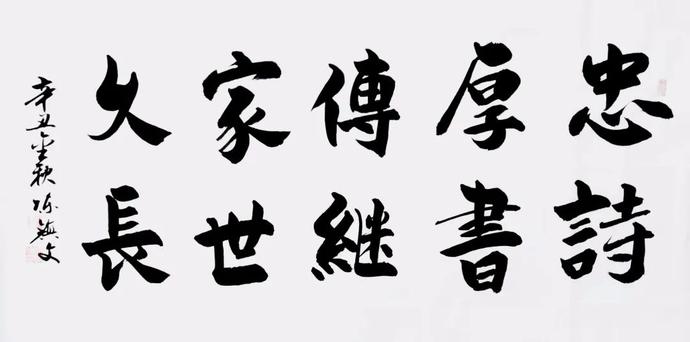 忠厚傳家久
詩書継世長
辛丑金秋